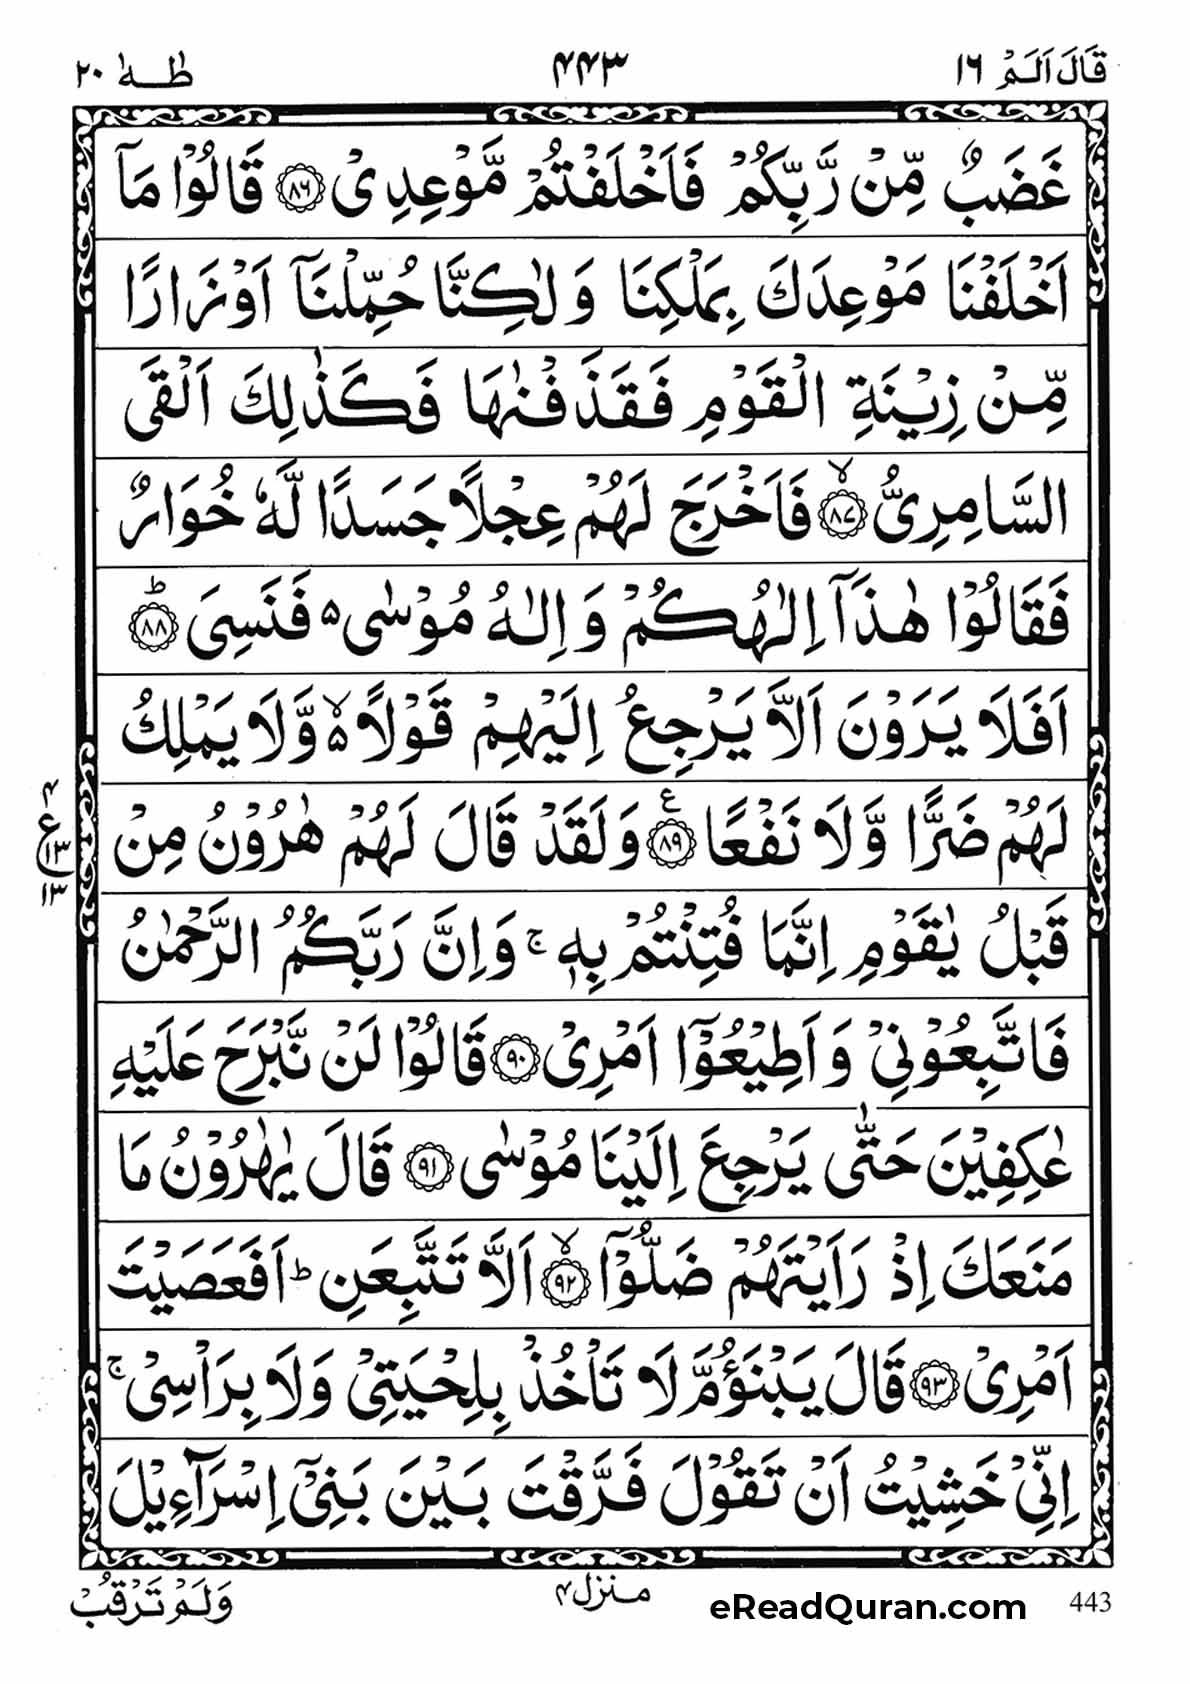 قَالَ اَلَمْ ١٦
٤٤٣
طٰهٰ ٢٠
غَضَبٌ مِّنْ رَّبِّكُمْ فَاَخْلَفْتُمْ مَّوْعِدِیْ ﴿٨٦﴾ قَالُوْا مَاۤ
اَخْلَفْنَا مَوْعِدَكَ بِمَلْكِنَا وَلٰكِنَّا حُمِّلْنَاۤ اَوْزَارًا
مِّنْ زِیْنَةِ الْقَوْمِ فَقَذَفْنٰهَا فَكَذٰلِكَ اَلْقَی
السَّامِرِیُّ ﴿٨٧﴾ۙ فَاَخْرَجَ لَهُمْ عِجْلًا جَسَدًا لَّهٗ خُوَارٌ
فَقَالُوْا هٰذَاۤ اِلٰهُكُمْ وَاِلٰهُ مُوْسٰی ۥ فَنَسِیَ ﴿٨٨﴾ؕ
اَفَلَا یَرَوْنَ اَلَّا یَرْجِعُ اِلَیْهِمْ قَوْلًا ۙ۬ وَّلَا یَمْلِكُ
لَهُمْ ضَرًّا وَّلَا نَفْعًا ﴿٨٩﴾ ع وَلَقَدْ قَالَ لَهُمْ هٰرُوْنُ مِنْ
٤
ع ١٣
١٣
قَبْلُ یٰقَوْمِ اِنَّمَا فُتِنْتُمْ بِهٖ ۚ وَاِنَّ رَبَّكُمُ الرَّحْمٰنُ
فَاتَّبِعُوْنِیْ وَاَطِیْعُوْۤا اَمْرِیْ ﴿٩٠﴾ قَالُوْا لَنْ نَّبْرَحَ عَلَیْهِ
عٰكِفِیْنَ حَتّٰی یَرْجِعَ اِلَیْنَا مُوْسٰی ﴿٩١﴾ قَالَ یٰهٰرُوْنُ مَا
مَنَعَكَ اِذْ رَاَیْتَهُمْ ضَلُّوْۤا ﴿٩٢﴾ۙ اَلَّا تَتَّبِعَنِ ؕ اَفَعَصَیْتَ
اَمْرِیْ ﴿٩٣﴾ قَالَ یَبْنَؤُمَّ لَا تَاْخُذْ بِلِحْیَتِیْ وَلَا بِرَاْسِیْ ۚ
اِنِّیْ خَشِیْتُ اَنْ تَقُوْلَ فَرَّقْتَ بَیْنَ بَنِیْۤ اِسْرَآءِیْلَ
وَلَمْ تَرْقُبْ
منزل ٤
eReadQuran.com
443